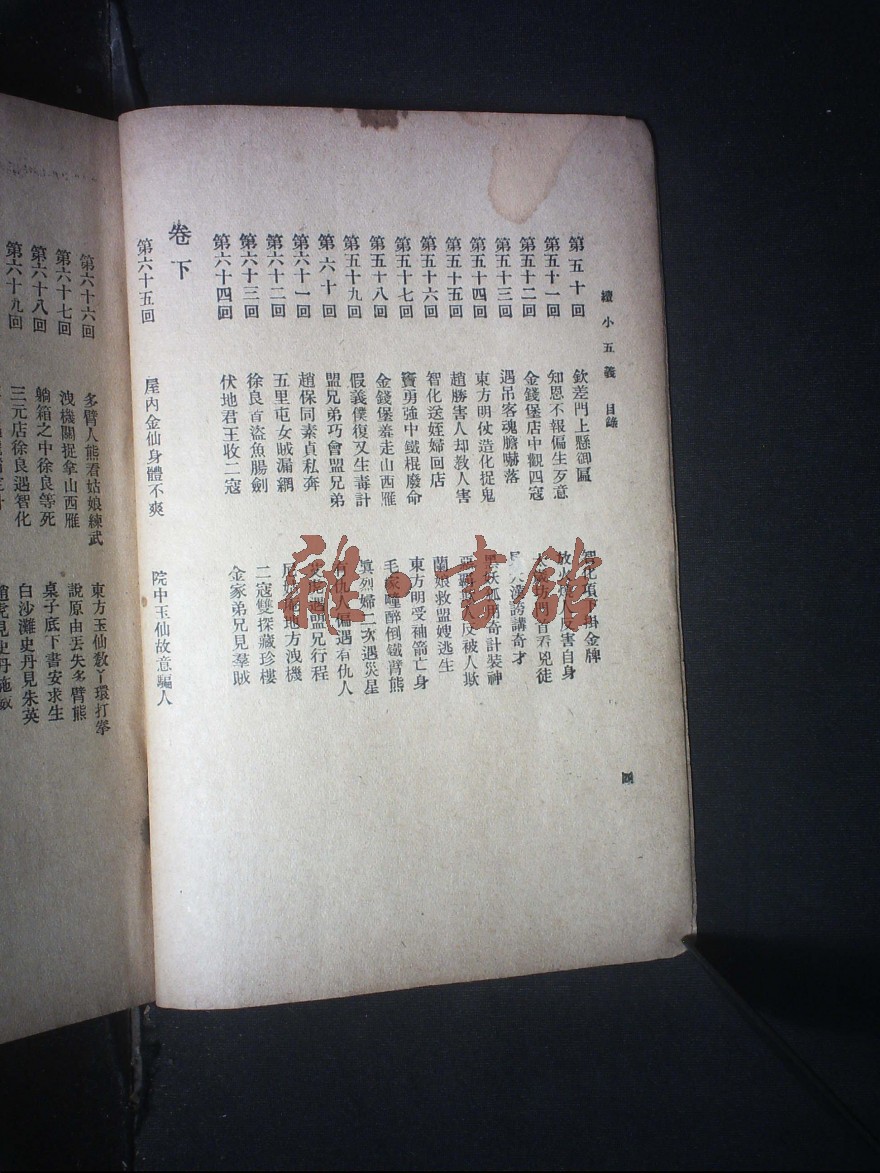 續小五義 目錄
第五十回 欽差門上懸御匾 智化項下掛金牌
第五十一回 知恩不報偏生歹意 放火燒人反害自身
第五十二回 金錢堡店中觀四寇 看兇徒
第五十三回 遇吊客魂膽嚇落 漢誇講奇才
第五十四回 東方明仗造化捉鬼 妖狐用奇計裝神
第五十五回 趙勝害人却教人害 人反被人欺
第五十六回 智化送姪婦回店 蘭娘救盟嫂逃生
第五十七回 竇勇強中鐵棍廢命 東方明受袖箭亡身
第五十八回 金錢堡羞走山西雁 毛家疃醉倒鐵臂熊
第五十九回 假義僕復又生毒計 真烈婦二次遇災星
第六十回 盟兄弟巧會盟兄弟 有仇人偏遇有仇人
第六十一回 趙保同素貞私奔 艾虎遇盟兄行程
第六十二回 五里屯女賊漏網 尼姑庵地方洩機
第六十三回 徐良首盜魚腸劍 二寇雙探藏珍樓
第六十四回 伏地君王收二寇 金家弟兄見羣賊
卷下
第六十五回 屋內金仙身體不爽 院中玉仙故意騙人
四
第六十六回 多臂人熊看姑娘練武 東方玉仙教丫環打拳
第六十七回 洩機關捉拿山西雁 說原由丟失多臂熊
第六十八回 躺箱之中徐良等死 桌子底下書安求生
第六十九回 三元店徐良遇智化 白沙灘史丹見朱英
雜·書館